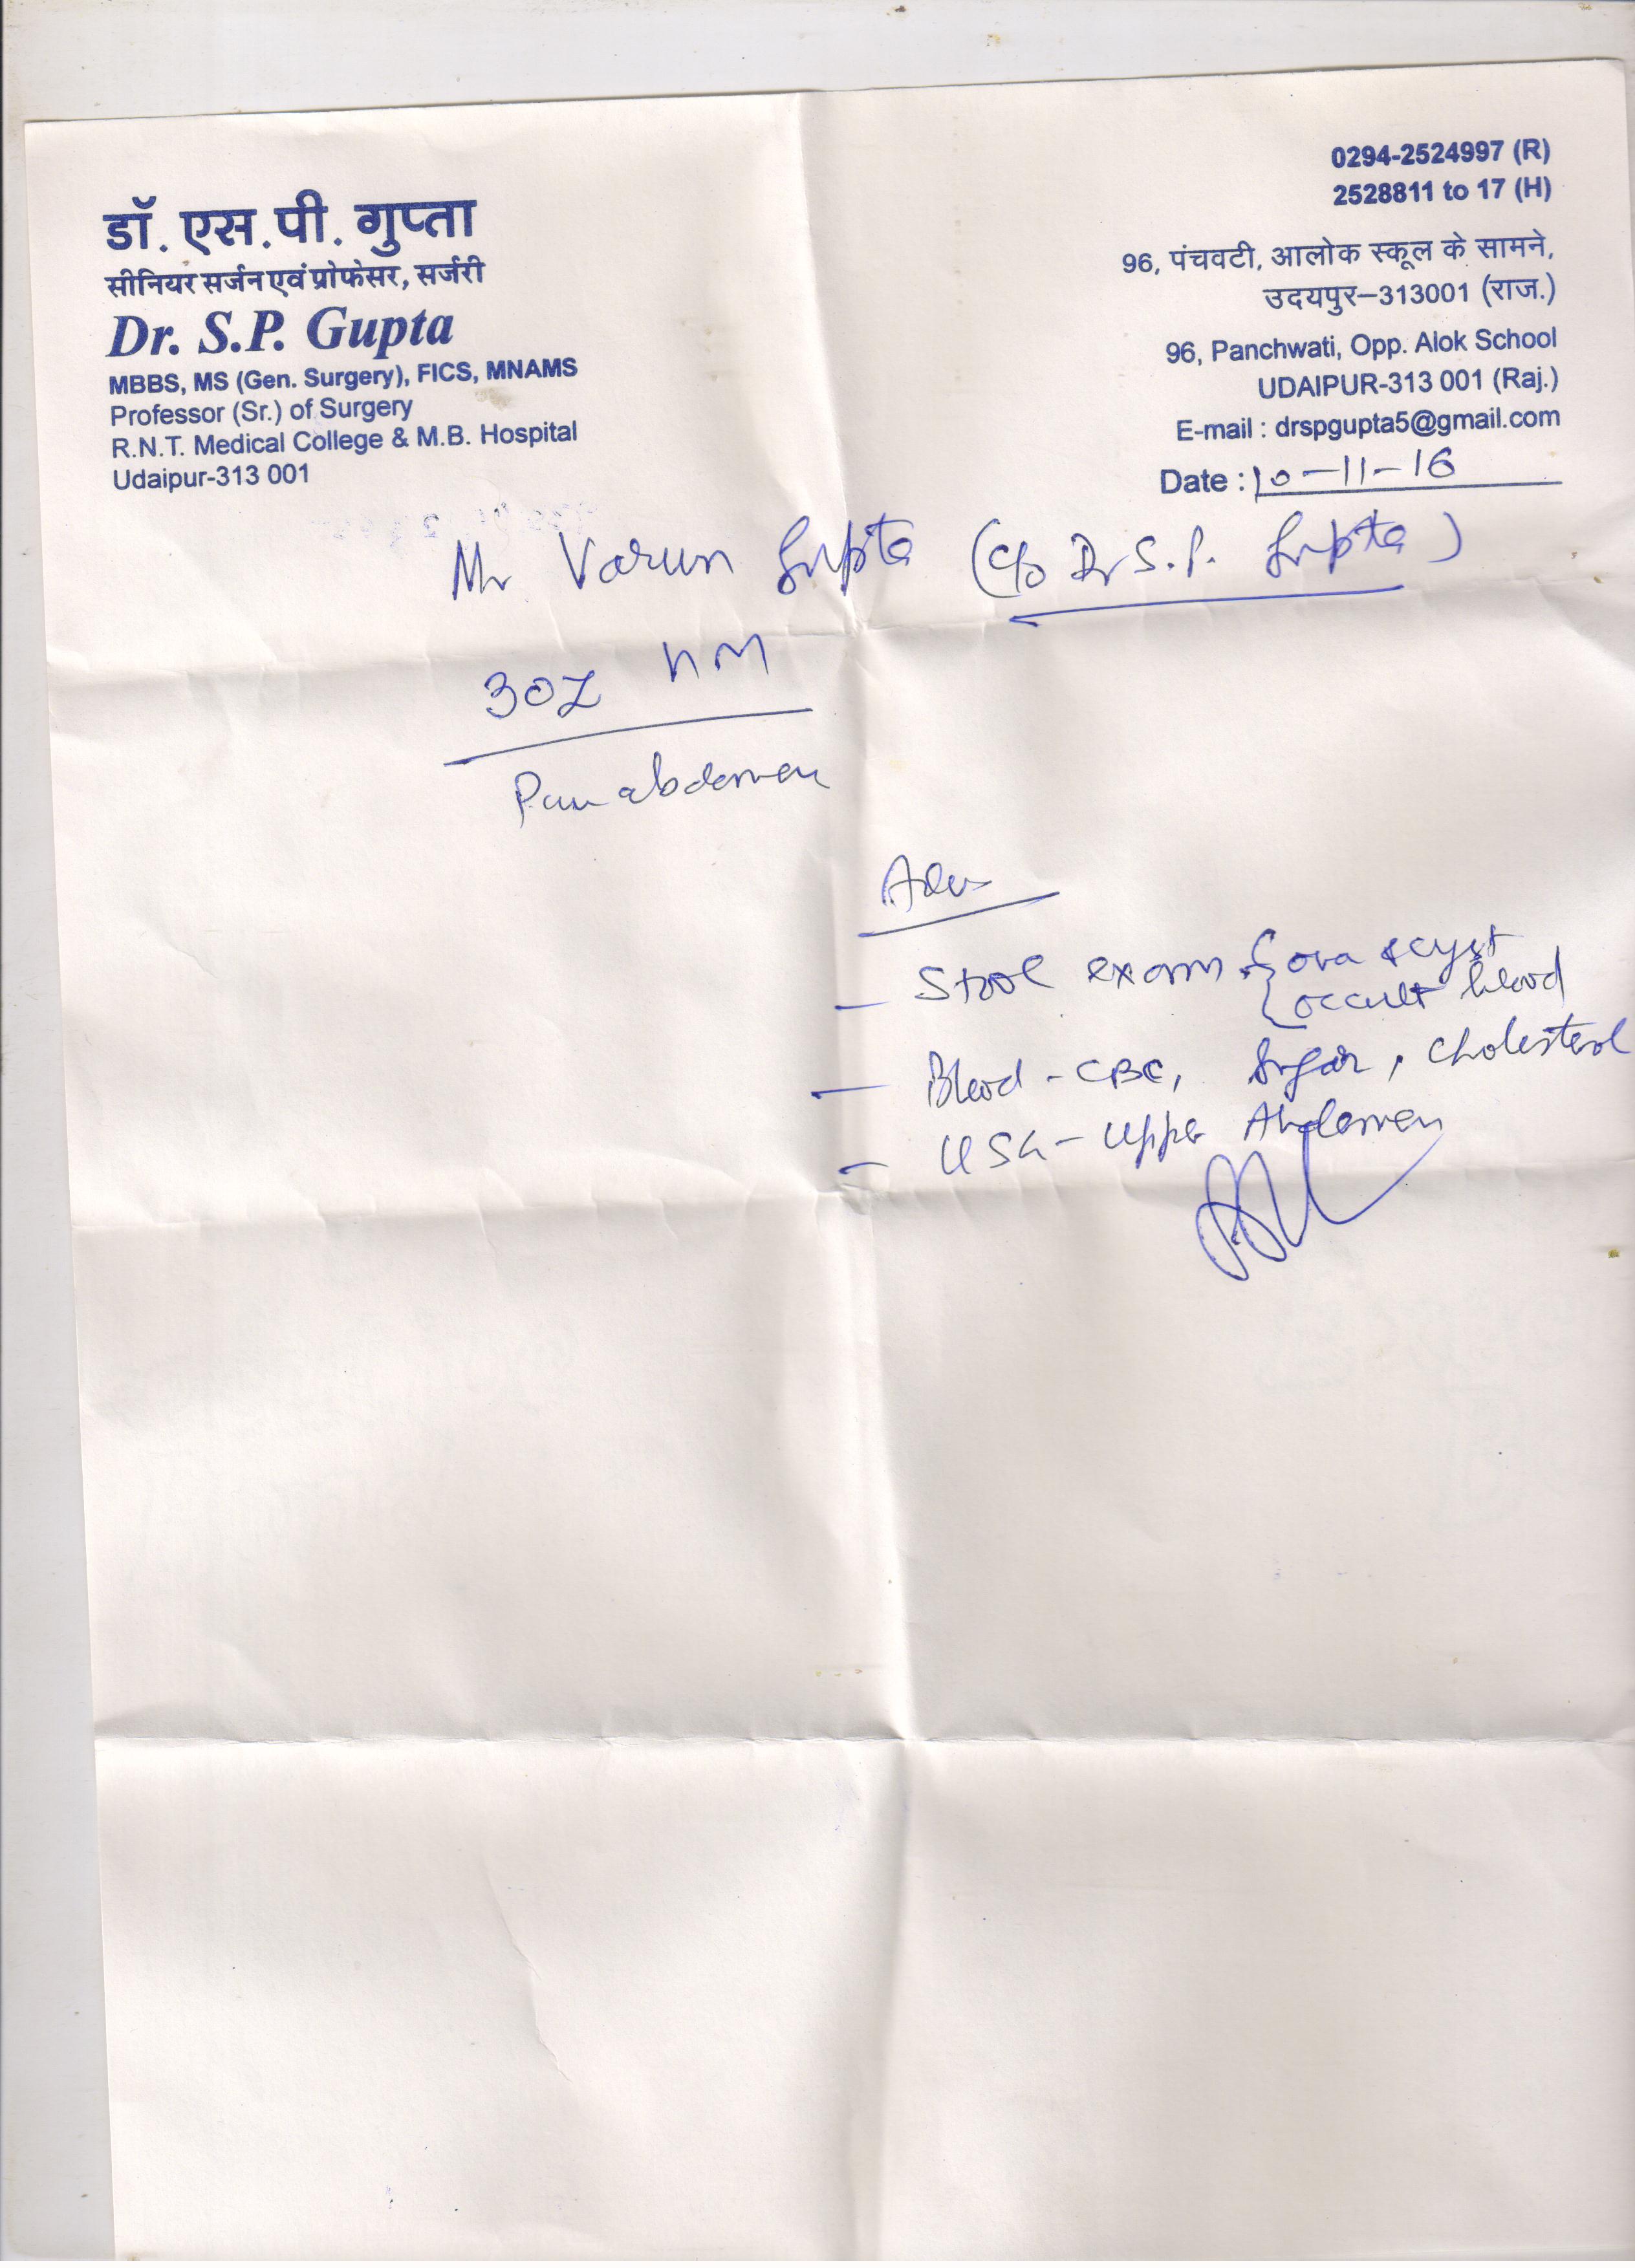 डॉ. एस.पी. गुप्ता
सीनियर सर्जन एवं प्रोफेसर, सर्जरी
Dr. S.P. Gupta
MBBS, MS (Gen. Surgery), FICS, MNAMS
Professor (Sr.) of Surgery
R.N.T. Medical College & M.B. Hospital
Udaipur-313 001
0294-2524997 (R)
2528811 to 17 (H)
96, पंचवटी, आलोक स्कूल के सामने,
उदयपुर–313001 (राज.)
96, Panchwati, Opp. Alok School
UDAIPUR-313 001 (Raj.)
E-mail : drspgupta5@gmail.com
Date : 10-11-16
Mr Varun Gupta (C/o Dr S.P. Gupta)
Pain abdomen
Adv
- Stool exam { ova & cyst
{ occult blood
- Blood - CBC, Sugar, Cholesterol
- USG - Upper Abdomen